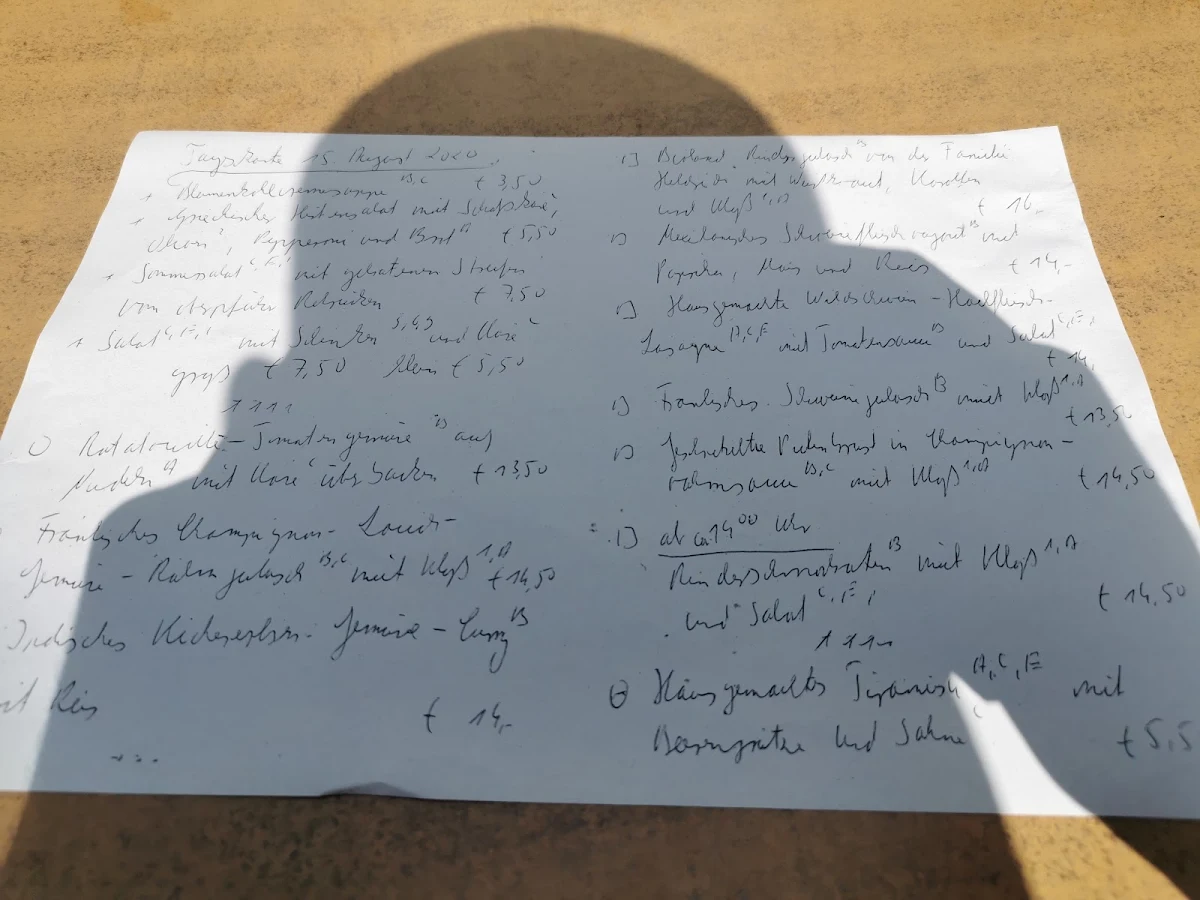 Tageskarte 15. August 2020
+ Blumenkohlcremesuppe B,C € 3,50
+ Griechischer Hirtensalat mit Schafskäse,
Oliven, Pepperoni und Brot € 5,50
+ Sommersalat C,E, mit gebratenen Streifen
vom € 7,50
+ Salat C,E, mit Schinken 3,4,9 und Käse C
groß € 7,50 klein € 5,50
Ratatouille-Tomatengemüse B auf
Nudeln A mit Käse C überbacken € 13,50
Fränkisches Champignon-Lauch-
gemüse-Rahmgulasch B,C mit Kloß 1,A € 14,50
Indisches Kichererbsen-Gemüse-Curry B
mit Reis € 14,-
Bioland Rindsgulasch B von der Familie
mit Karotten
und Kloß 1,A € 16,-
Mexikanisches Schweinefleischragout B mit
Paprika, Mais und Reis € 14,-
Hausgemachte Wildschwein-Hackfleisch-
Lasagne A,C,E mit Tomatensauce B und Salat C,E,
€ 14,
Fränkisches Schweinegulasch B mit Kloß 1,A
€ 13,50
Geschnetzelte Putenbrust in Champignon-
rahmsauce B,C mit Kloß 1,A € 14,50
ab ca. 14 00 Uhr
Rinderschmorbraten B mit Kloß 1,A
und Salat C,E, € 14,50
Hausgemachtes Tiramisu A,C,E mit
Beerengrütze und Sahne C € 5,5